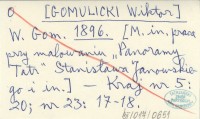 o [GOMULICKI Wiktor]
W. Gom. 1896. [M. in. praca
przy malowaniu „Panoramy
Tatr" Stanisława Janowskie-
go i in.] — Kraj nr 5:
20; nr 23: 17-18.